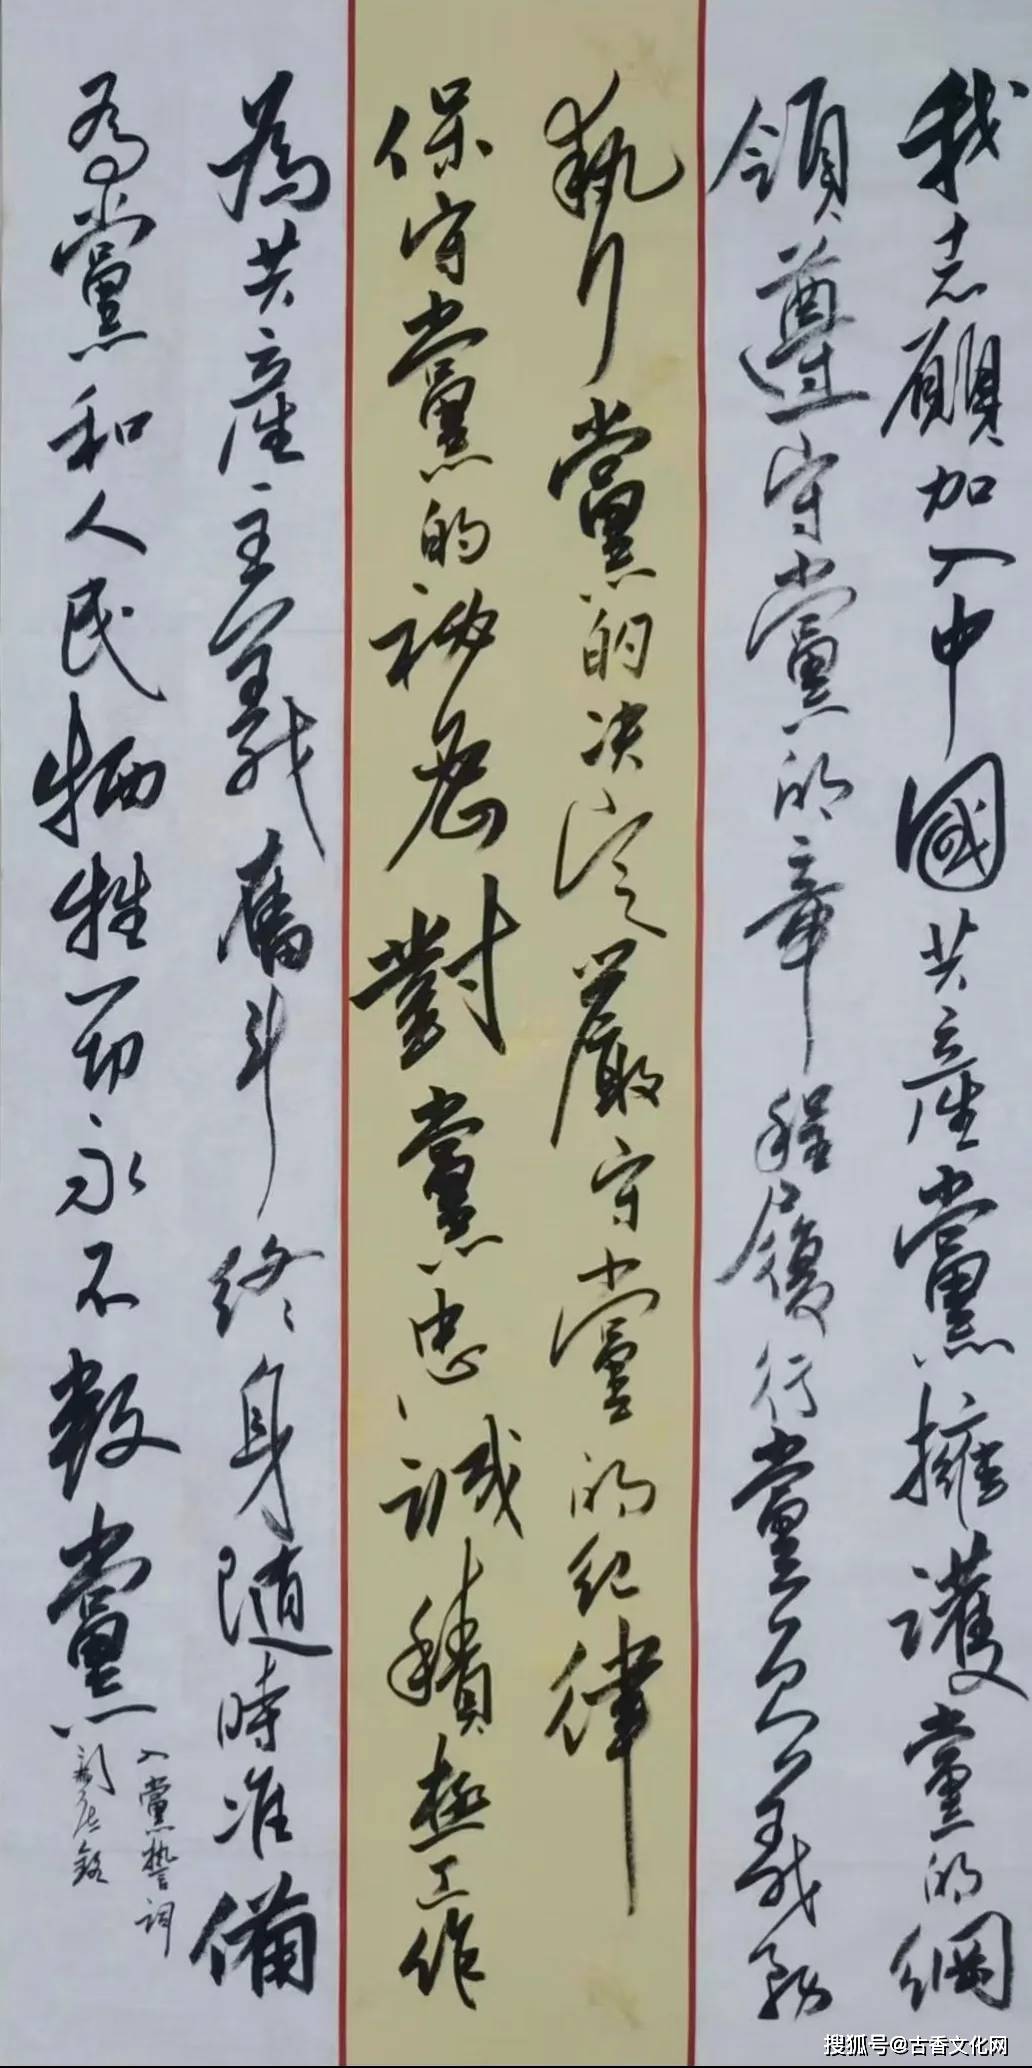 我志願加入中國共産黨擁護黨的綱
領遵守黨的章程履行黨員義務
執行黨的决定嚴守黨的纪律
保守黨的秘密對黨忠誠積極工作
為共産主義奮斗终身随時准備
為黨和人民牺牲一切永不叛黨
入黨誓詞
搜狐号@古香文化网